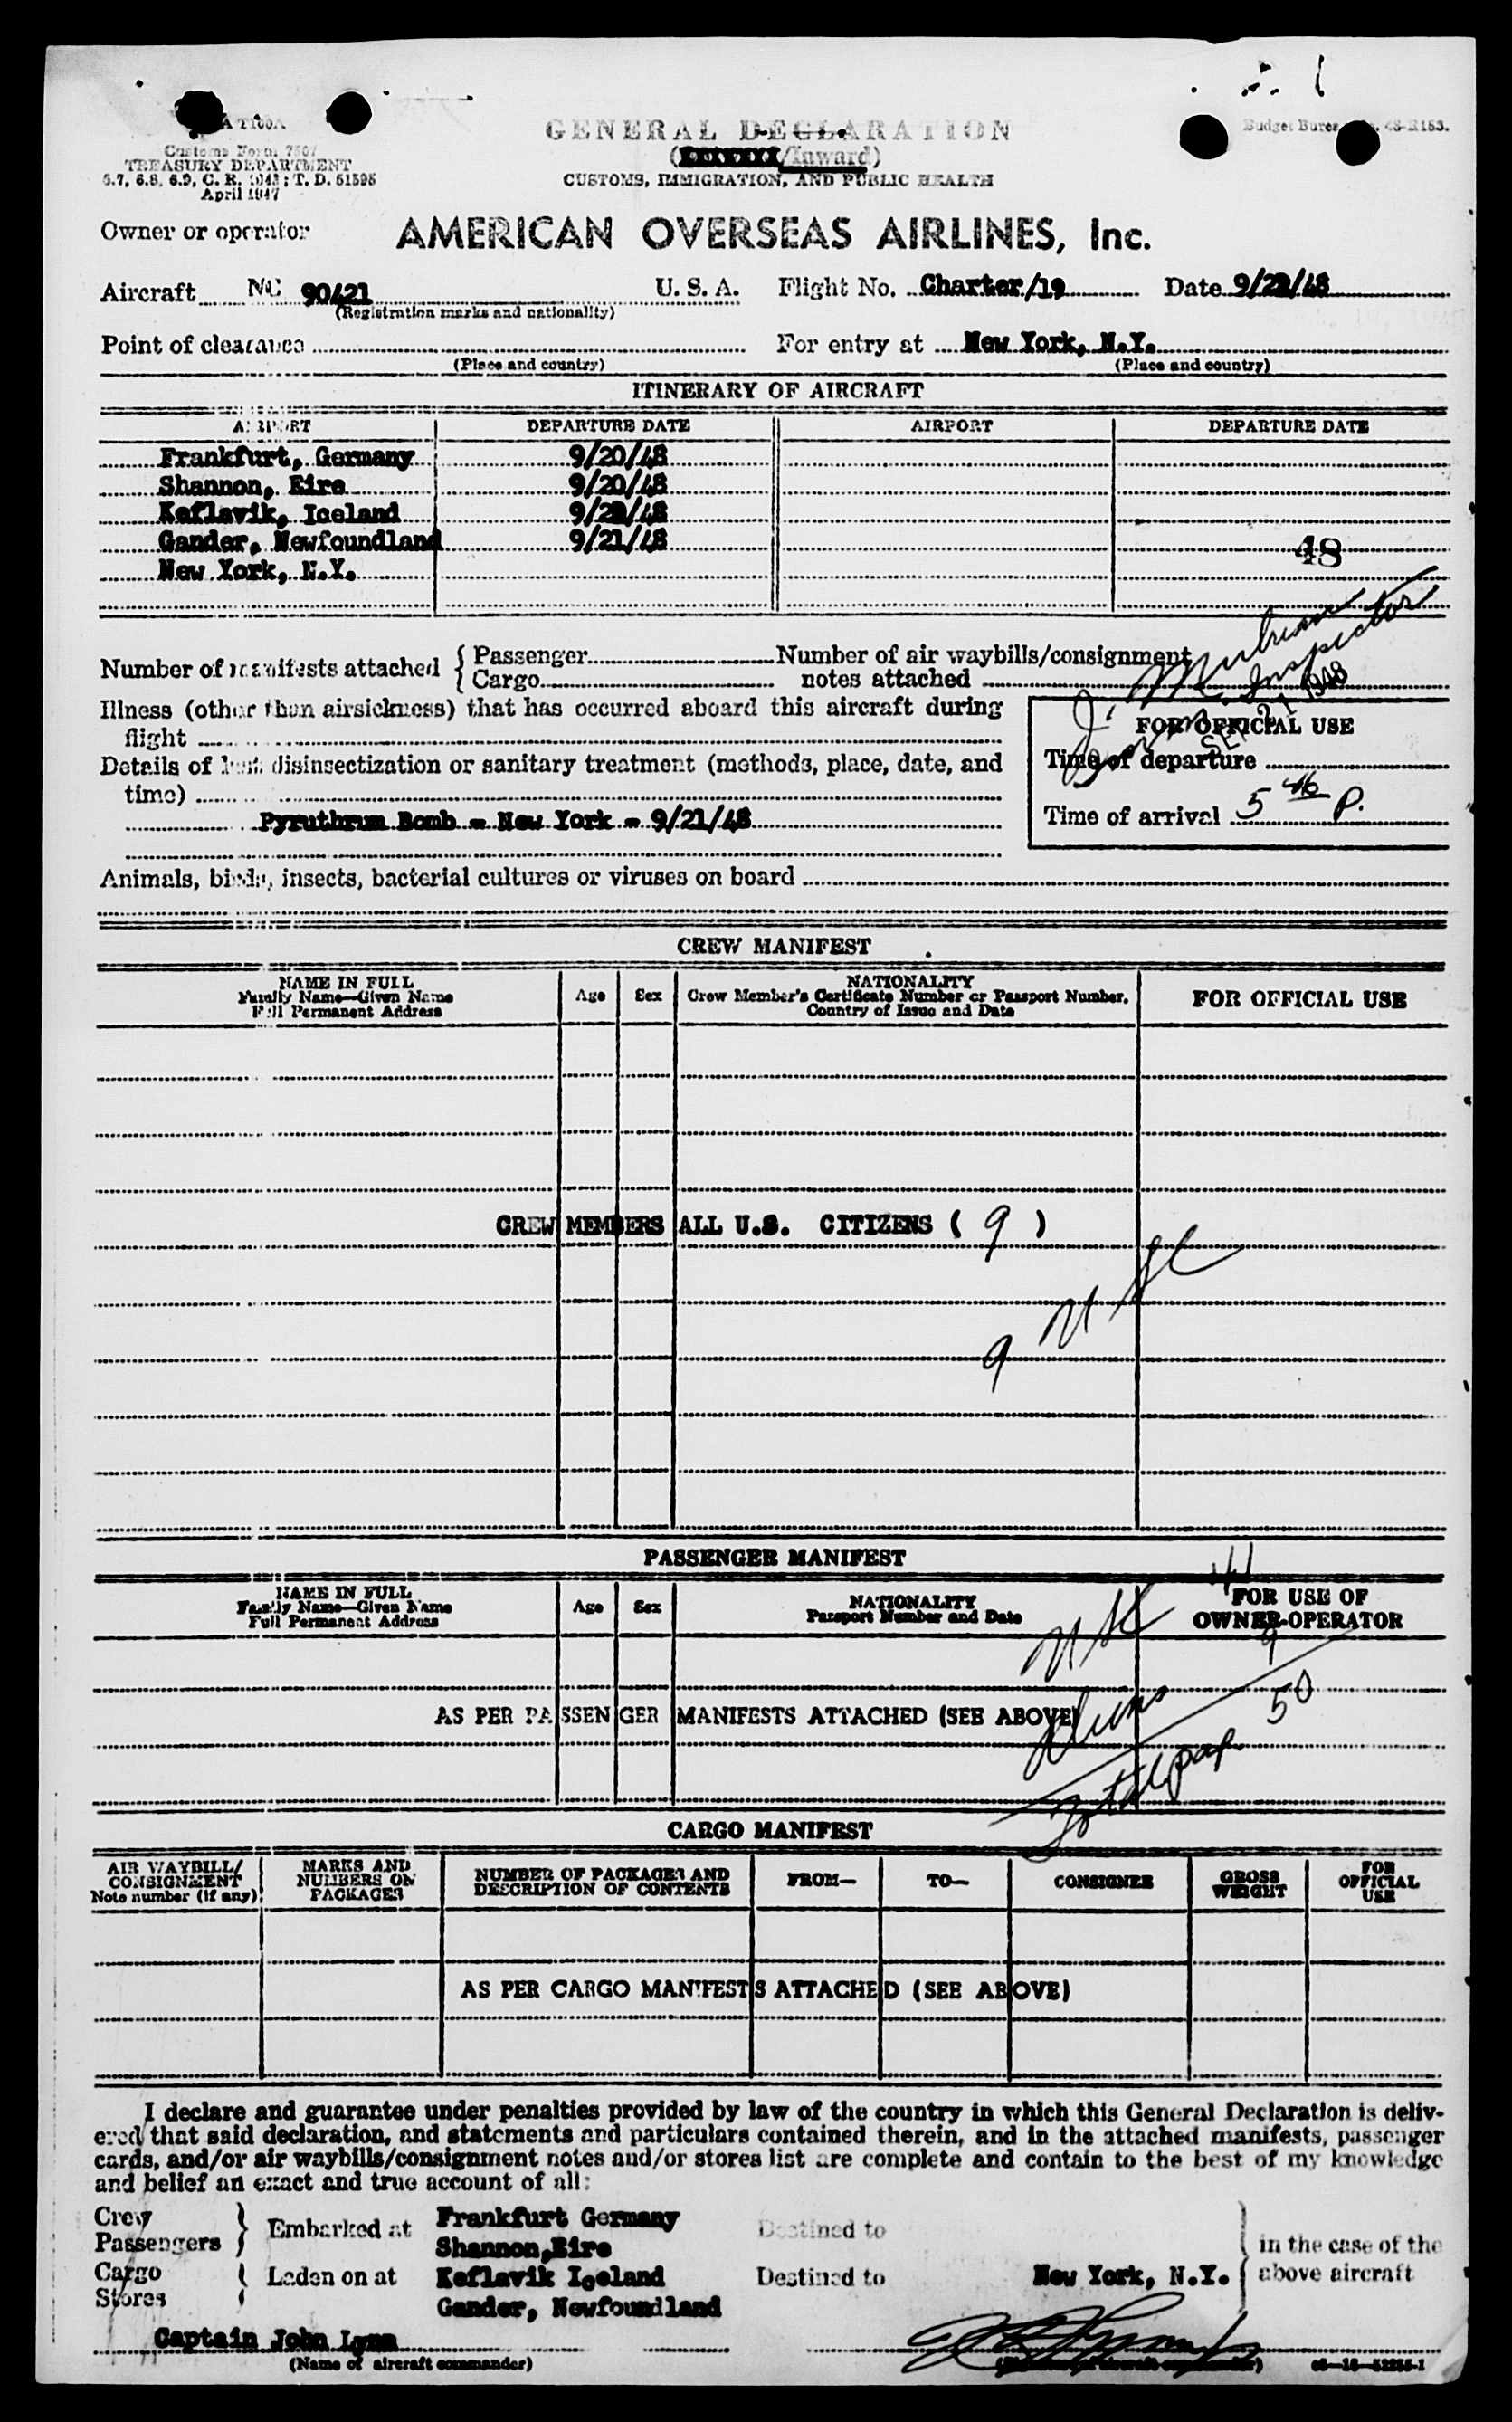 Customs Form 7507
TREASURY DEPARTMENT
6.7, 6.8, 6.9, C. R. 1943; T. D. 51595
April 1947
GENERAL DECLARATION
(/Inward)
CUSTOMS, IMMIGRATION, AND PUBLIC HEALTH
Budget Bureau
Owner or operator AMERICAN OVERSEAS AIRLINES, Inc.
Aircraft NC 90421 U. S. A. Flight No. Charter/19 Date
(Registration marks and nationality)
Point of clearance For entry at New York, N.Y.
(Place and country) (Place and country)
ITINERARY OF AIRCRAFT
AIRPORT DEPARTURE DATE AIRPORT DEPARTURE DATE
Frankfurt, Germany 9/20/48
Shannon, Eire 9/20/48
Keflavik, Iceland
Gander, Newfoundland 9/21/48
48
New York, N.Y.
Inspector
Number of manifests attached { Passenger Number of air waybills/consignment
{ Cargo notes attached
1948
Illness (other than airsickness) that has occurred aboard this aircraft during
flight
FOR OFFICIAL USE
Details of last disinsectization or sanitary treatment (methods, place, date, and
time)
Time of departure
Pyruthrum Bomb - New York - 9/21/48
Time of arrival 5 46 P.
Animals, birds, insects, bacterial cultures or viruses on board
CREW MANIFEST
NAME IN FULL
Family Name—Given Name
Full Permanent Address
Age Sex
NATIONALITY
Crew Member's Certificate Number or Passport Number.
Country of Issue and Date
FOR OFFICIAL USE
CREW MEMBERS ALL U.S. CITIZENS ( 9 )
9 USC
PASSENGER MANIFEST
NAME IN FULL
Family Name—Given Name
Full Permanent Address
Age Sex
NATIONALITY
Passport Number and Date
FOR USE OF
OWNER-OPERATOR
USC 41
Aliens 9
AS PER PASSENGER MANIFESTS ATTACHED (SEE ABOVE)
Total pax. 50
CARGO MANIFEST
AIR WAYBILL/
CONSIGNMENT
Note number (if any)
MARKS AND
NUMBERS ON
PACKAGES
NUMBER OF PACKAGES AND
DESCRIPTION OF CONTENTS
FROM— TO— CONSIGNEE
GROSS
WEIGHT
FOR
OFFICIAL
USE
AS PER CARGO MANIFESTS ATTACHED (SEE ABOVE)
I declare and guarantee under penalties provided by law of the country in which this General Declaration is deliv-
ered that said declaration, and statements and particulars contained therein, and in the attached manifests, passenger
cards, and/or air waybills/consignment notes and/or stores list are complete and contain to the best of my knowledge
and belief an exact and true account of all:
Crew
Passengers } Embarked at Frankfurt Germany Destined to
Shannon,Eire in the case of the
Cargo
Stores { Laden on at Keflavik Iceland Destined to New York, N.Y. above aircraft
Gander, Newfoundland
Captain John Lynn
(Name of aircraft commander) (Signature of aircraft commander)